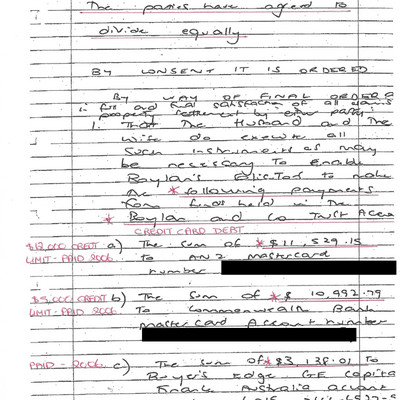 The parties have agreed to
divide equally
BY CONSENT IT IS ORDERED
BY WAY OF FINAL ORDER &
in full and final satisfaction of all claims
property settlement by either party:
1. That the Husband and the
wife do execute all
such instruments as may
be necessary to enable
Boylan's to make
the * following payments
from funds held in the
* Boylan and Co Trust Accou
CREDIT CARD DEBT
$12,000 CREDIT a) The sum of *$11,529.15
LIMIT-PAID 2006 to ANZ Mastercard
number
$5,000 CREDIT b) The sum of *$ 10,992.79
LIMIT-PAID 2006 to Commonwealth Bank
Mastercard Account number
PAID - 2006 c) The sum of *$3,138.01 to
Buyer's Edge GE Capita
Finance Australia account